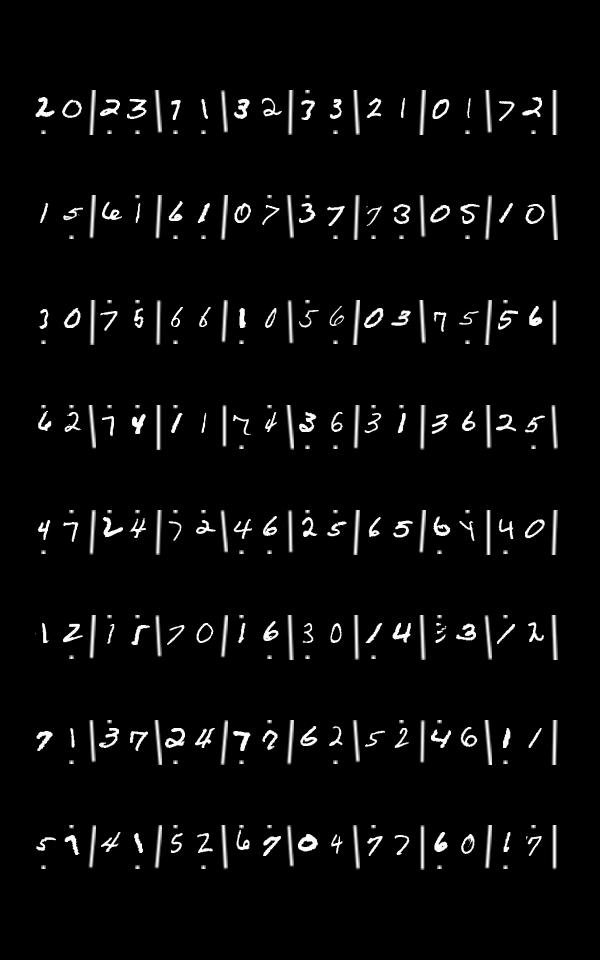 2 0 | 2 3 | 7 1 | 3 2 | 3 3 | 2 1 | 0 1 | 7 2 |
1 5 | 6 1 | 6 1 | 0 7 | 3 7 | 7 3 | 0 5 | 1 0 |
3 0 | 7 5 | 6 6 | 1 0 | 5 6 | 0 3 | 7 5 | 5 6 |
6 2 | 7 4 | 1 1 | 7 4 | 3 6 | 3 1 | 3 6 | 2 5 |
4 7 | 2 4 | 7 2 | 4 6 | 2 5 | 6 5 | 6 4 | 4 0 |
1 2 | 1 5 | 7 0 | 1 6 | 3 0 | 1 4 | 3 3 | 1 2 |
7 1 | 3 7 | 2 4 | 7 7 | 6 2 | 5 2 | 4 6 | 1 1 |
5 7 | 4 1 | 5 2 | 6 7 | 0 4 | 7 7 | 6 0 | 1 7 |